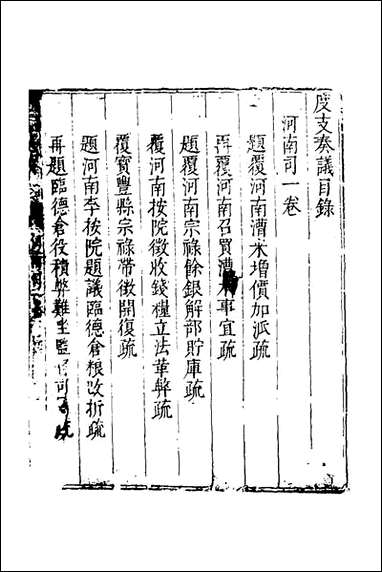 度支奏議目錄
河南司一卷
題覆河南漕米增價加派疏
再覆河南召買漕米事宜疏
題覆河南宗祿餘銀解部貯庫疏
覆河南按院徵收錢糧立法革弊疏
覆寶豐縣宗祿帶徵開復疏
題河南李按院題議臨德倉粮改折疏
再題臨德倉役積弊難